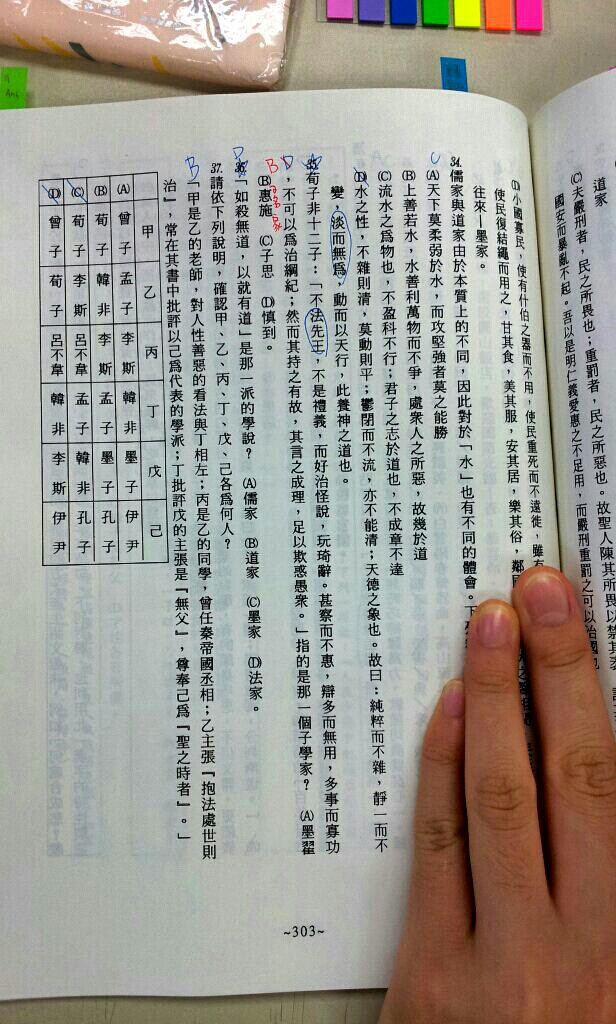 道家
(C)夫嚴刑者，民之所畏也；重罰者，民之所惡也。故聖人陳其所畏以禁其
國安而暴亂不起。吾以是明仁義愛惠之不足用，而嚴刑重罰之可以治國也
(D)小國寡民，使有什伯之器而不用，使民重死而不遠徙，雖有
使民復結繩而用之，甘其食，美其服，安其居，樂其俗，鄰國
往來—墨家。
34.儒家與道家由於本質上的不同，因此對於「水」也有不同的體會。下列
(A)天下莫柔弱於水，而攻堅強者莫之能勝
(B)上善若水，水善利萬物而不爭，處眾人之所惡，故幾於道
(C)流水之為物也，不盈科不行；君子之志於道也，不成章不達
(D)水之性，不雜則清，莫動則平；鬱閉而不流，亦不能清；天德之象也。故曰：純粹而不雜，靜一而不
變，淡而無為，動而以天行，此養神之道也。
35.荀子非十二子：「不法先王，不是禮義，而好治怪說，玩琦辭。甚察而不惠，辯多而無用，多事而寡功
，不可以為治綱紀；然而其持之有故，其言之成理，足以欺惑愚眾。」指的是那一個子學家？ (A)墨翟
(B)惠施 (C)子思 (D)慎到。
36.「如殺無道，以就有道」是那一派的學說？ (A)儒家 (B)道家 (C)墨家 (D)法家。
37.請依下列說明，確認甲、乙、丙、丁、戊、己各為何人？
「甲是乙的老師，對人性善惡的看法與丁相左；丙是乙的同學，曾任秦帝國丞相；乙主張『抱法處世則
治』，常在其書中批評以己為代表的學派；丁批評戊的主張是『無父』，尊奉己為『聖之時者』。」
甲 乙 丙 丁 戊 己
(A) 曾子 孟子 李斯 韓非 墨子 伊尹
(B) 荀子 韓非 李斯 孟子 墨子 孔子
(C) 荀子 李斯 呂不韋 孟子 韓非 孔子
(D) 曾子 荀子 呂不韋 韓非 李斯 伊尹
~303~
C
D
B
名家
B